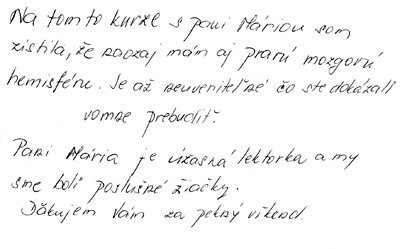 Na tomto kurze s pani Máriou som
zistila, že naozaj mám aj pravú mozgovú
hemisféru. Je až neuveriteľné čo ste dokázali
vo mne prebudiť.
Pani Mária je úžasná lektorka a my
sme boli poslušné žiačky.
Ďakujem Vám za pekný víkend.